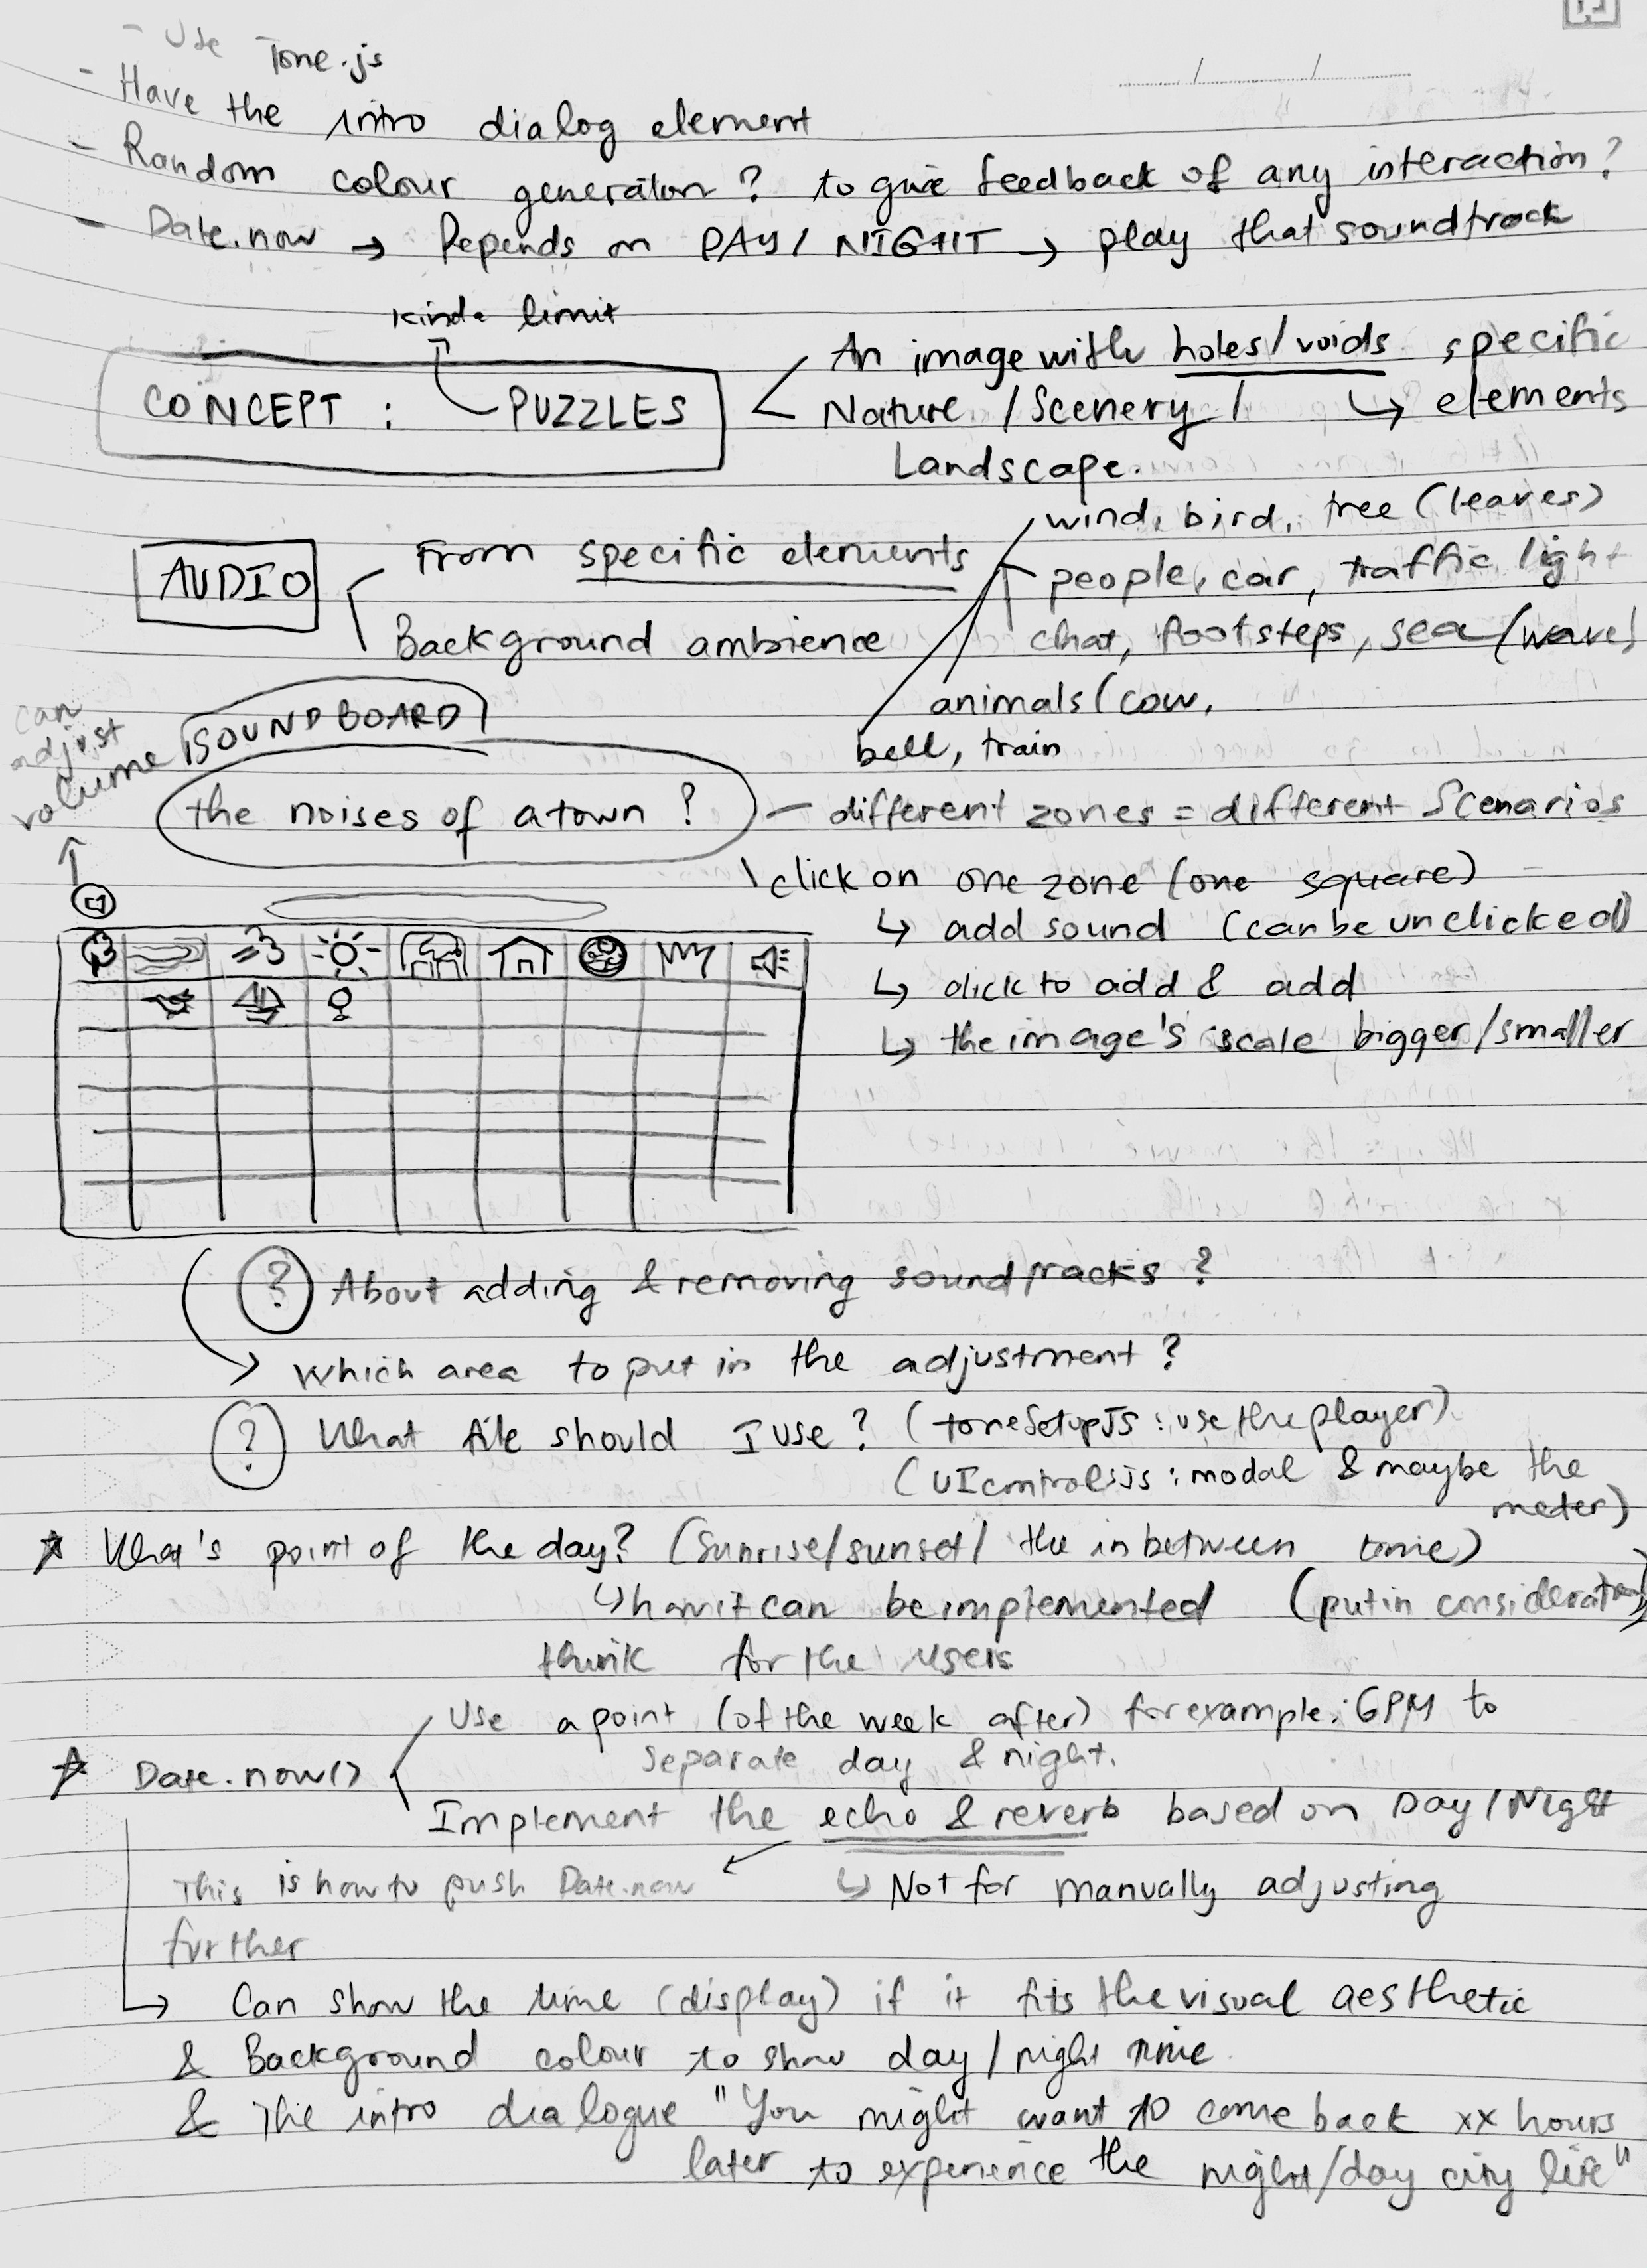 - Use Tone.js
- Have the intro dialog element
- Random colour generation? to give feedback of any interaction?
- Date.now → Depends on DAY/NIGHT → play that soundtrack
kinda limit
CONCEPT : PUZZLES
An image with holes/voids specific
Nature /Scenery / ↳ elements
Landscape.
AUDIO
From specific elements
Background ambience
wind, bird, tree (leaves)
people, car, traffic light
chat, footsteps, sea (wave)
animals (cow,
bell, train
can adjust volume
SOUNDBOARD
the noises of a town? - different zones = different scenarios
click on one zone (one square)
↳ add sound (can be unclicked)
↳ click to add & add
↳ the image's scale bigger/smaller
? About adding & removing soundtracks?
→ which area to put in the adjustment?
? What file should I use? (toneSetupJS : use the player)
(UIcontrols.js : modal & maybe the
meter)
★ What's point of the day? (Sunrise/sunset/ the in between time)
↳ how it can be implemented (put in consideration)
think for the users
★ Date.now()
Use a point (of the week after) for example: 6PM to
separate day & night.
Implement the echo & reverb based on Day/Night
This is how to push Date.now
further
↳ Not for manually adjusting
→ Can show the time (display) if it fits the visual aesthetic
& Background colour to show day/night time.
& The intro dialogue "You might want to come back xx hours
later to experience the night/day city life"